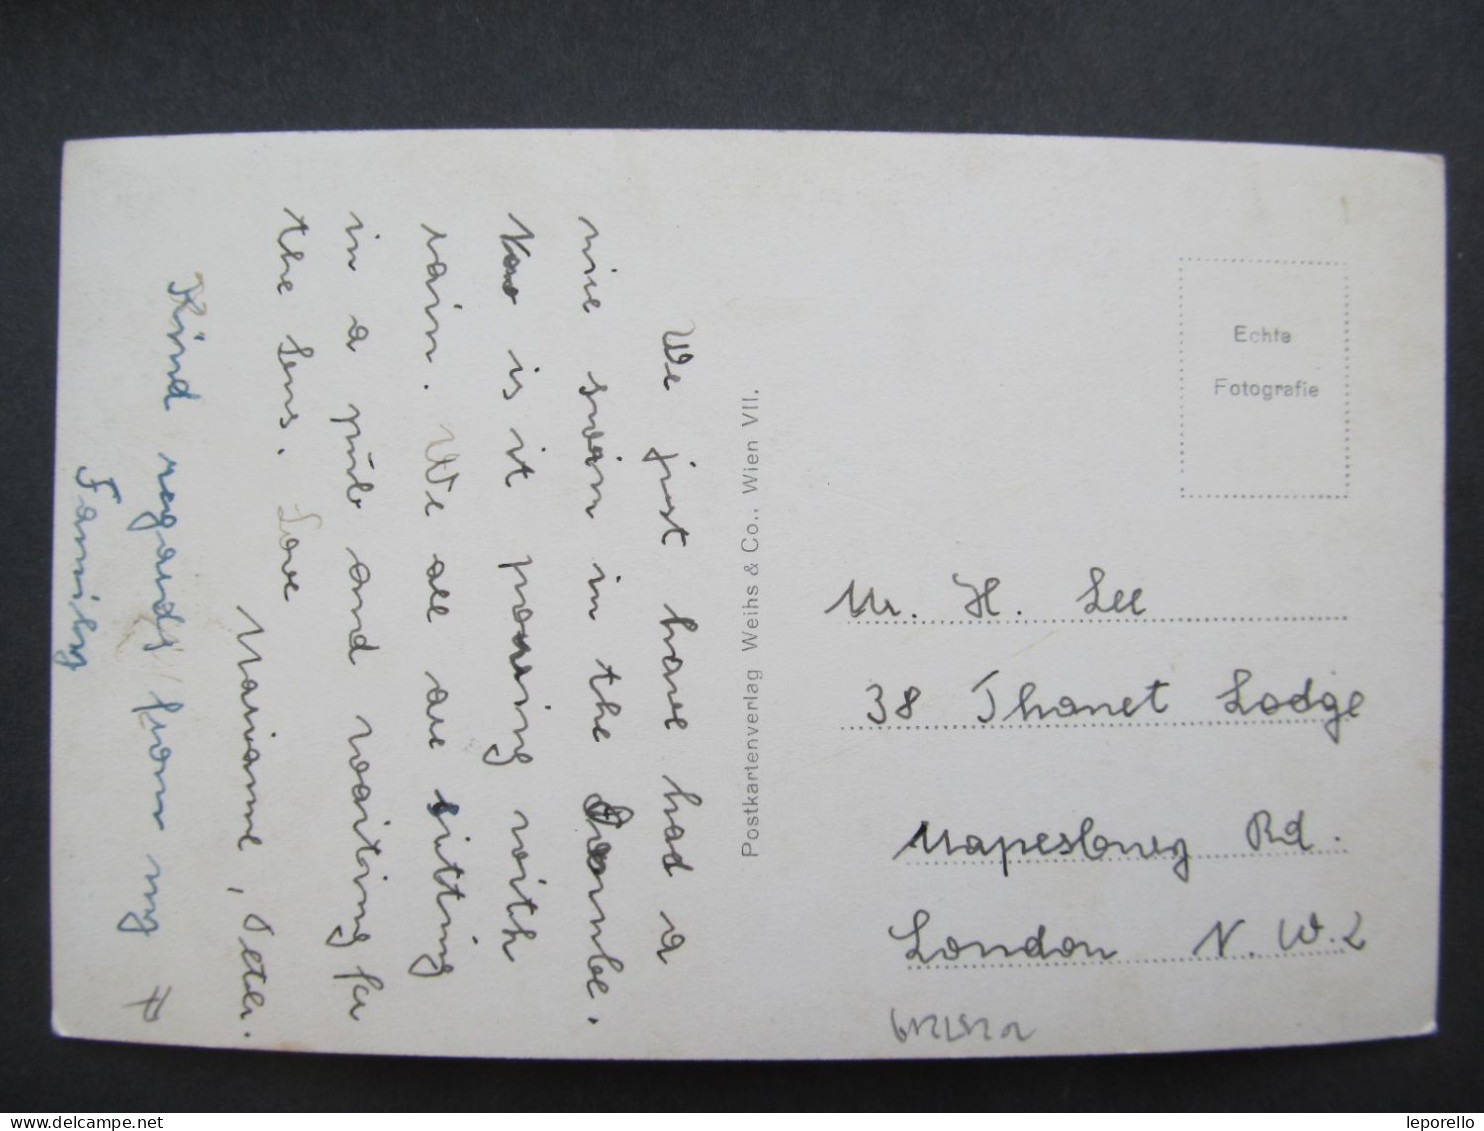 We just have had a
nice swim in the Donube.
Now is it pouring with
rain. We all are sitting
in a pub and waiting for
the sens. Love
Marianne, Peter.
Kind regards from my
Family
Postkartenverlag Weihs & Co., Wien VII.
Echte
Fotografie
Mr. H. Lee
38 Thanet Lodge
Mapesbury Rd.
London N.W.2
www.delcampe.net
leporello